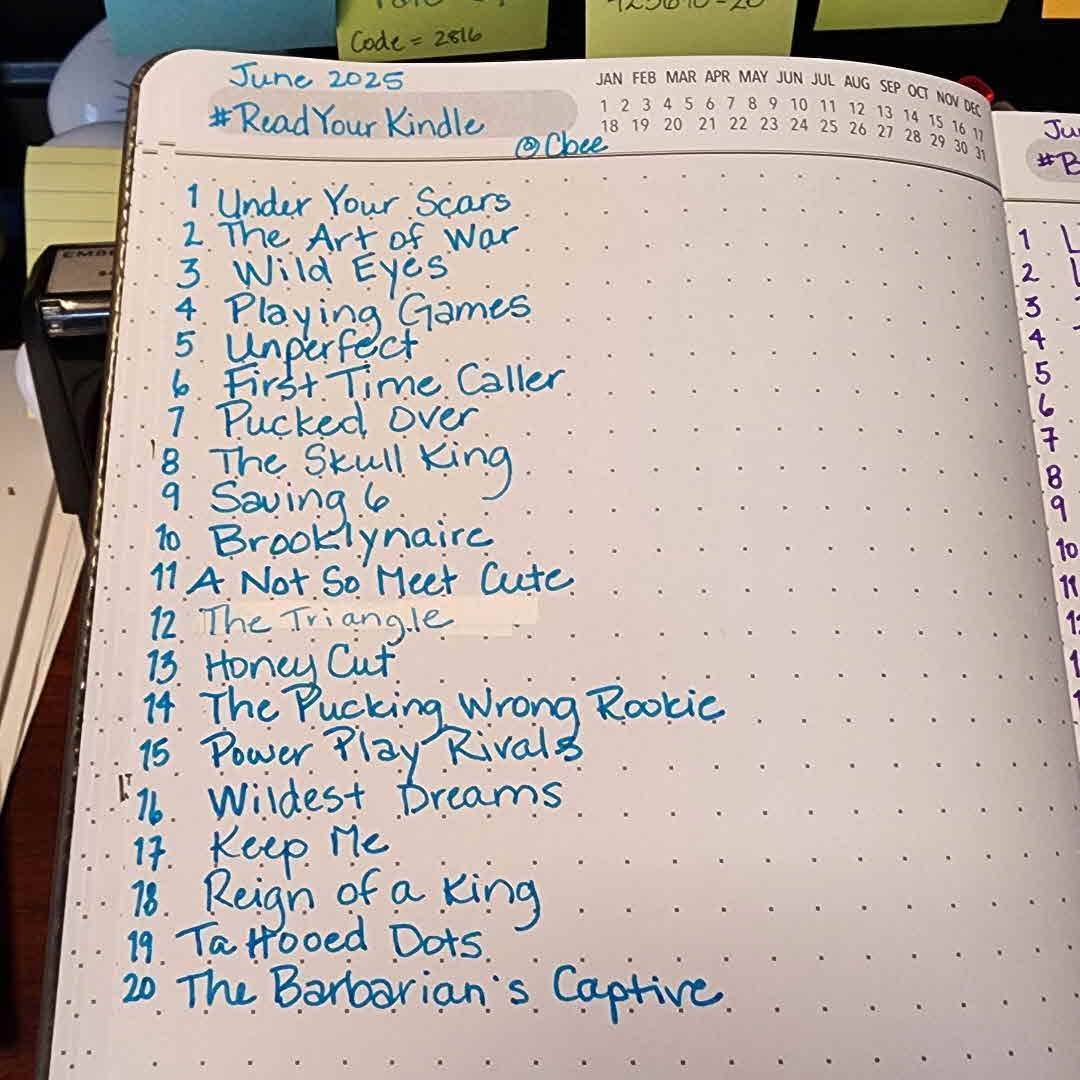 Code = 2816
June 2025
#ReadYourKindle
@Cbee
JAN FEB MAR APR MAY JUN JUL AUG SEP OCT NOV DEC
1 2 3 4 5 6 7 8 9 10 11 12 13 14 15 16 17
18 19 20 21 22 23 24 25 26 27 28 29 30 31
1 Under Your Scars
2 The Art of War
3 Wild Eyes
4 Playing Games
5 Unperfect
6 First Time Caller
7 Pucked Over
8 The Skull King
9 Saving 6
10 Brooklynaire
11 A Not So Meet Cute
12 The Triangle
13 Honey Cut
14 The Pucking Wrong Rookie
15 Power Play Rivals
16 Wildest Dreams
17 Keep Me
18 Reign of a King
19 Tattooed Dots
20 The Barbarian's Captive
Ju
#B
1
2
3
4
5
6
7
8
9
10
11